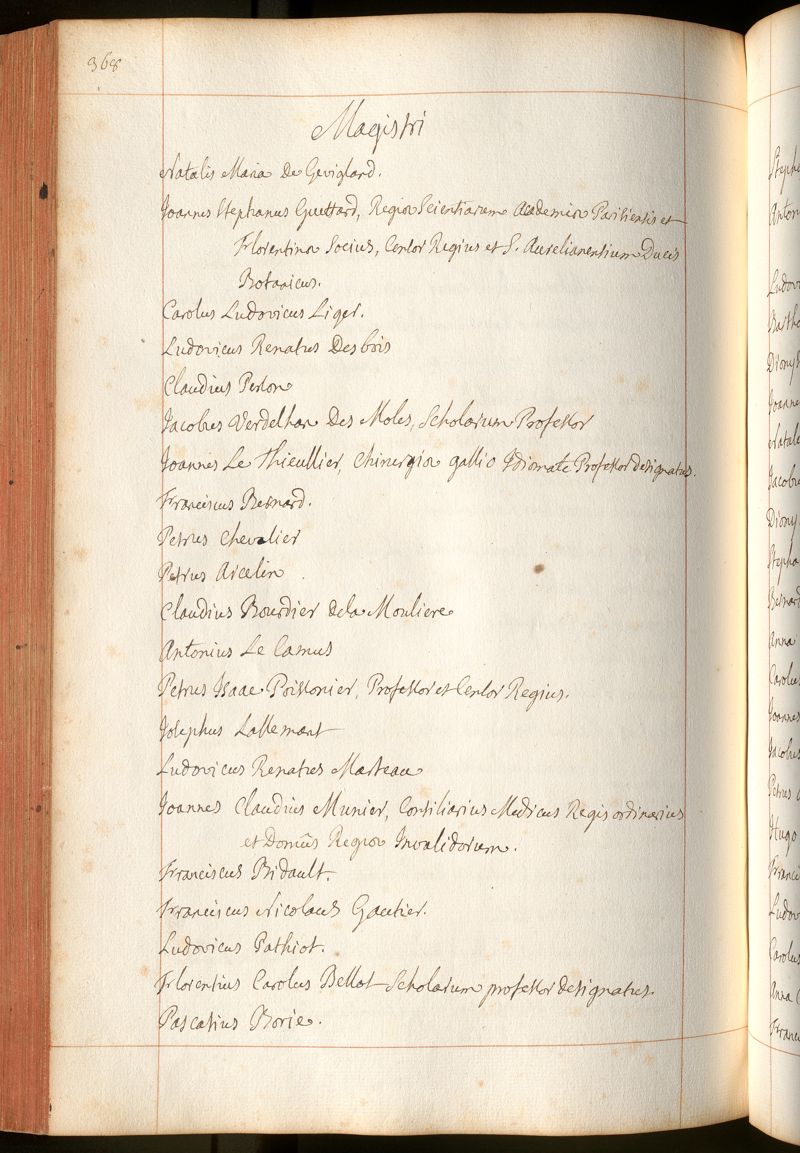 368
Magistri
Natalis Maria De Gevigland.
Joannes Stephanus Guettard, Regiæ Scientiarum Academiæ Parisiensis et
Florentinæ Socius, Censor Regius et S. Aurelianensium Ducis
Botanicus.
Carolus Ludovicus Liger.
Ludovicus Renatus Desbois
Claudius Person
Jacobus Verdelhan Des Moles, Scholarum Professor
Joannes Le Thieullier, Chirurgiæ gallico Idiomate Professor designatus.
Franciscus Bernard.
Petrus Chevalier
Petrus Arcelin
Claudius Bourdier dela Mouliere
Antonius Le Camus
Petrus Isaac Poissonier, Professor et Censor Regius.
Josephus Lallemant
Ludovicus Renatus Marteau
Joannes Claudius Munier, Consiliarius Medicus Regis ordinarius
et Domûs Regiæ Invalidorum.
Franciscus Bidault.
Franciscus Nicolaus Gautier.
Ludovicus Pathiot.
Florentius Carolus Bellot Scholarum professor designatus.
Pascasius Borie.
Steph
Anton
Ludov
Barth
Dionys
Joanne
Natal
Jacobu
Diony
Stepha
Bernard
Anna
Carolu
Joannes
Jacobu
Petrus
Hugo
Franci
Ludov
Carolus
Anna
Franc